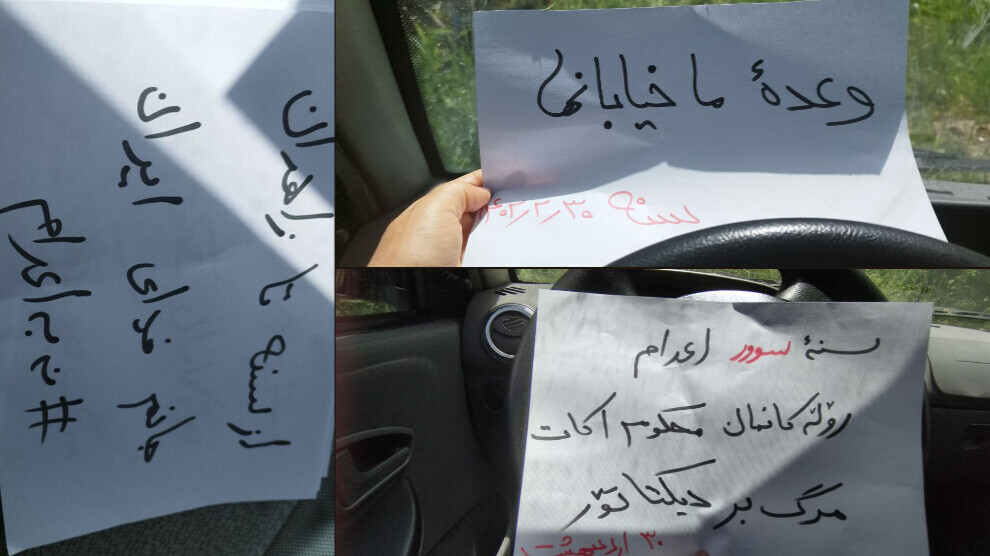 از سنه تا زاهدان
جانم فدای ایران
#نه_به_اعدام
وعدهٔ ما خیابانها
سنه ۱۴۰۲٫۲٫۳۰
سنهٔ سوور اعدام
رۆڵەکانمان محکوم اکات
مرگ بر دیکتاتۆر
۳۰ اردیبهشت